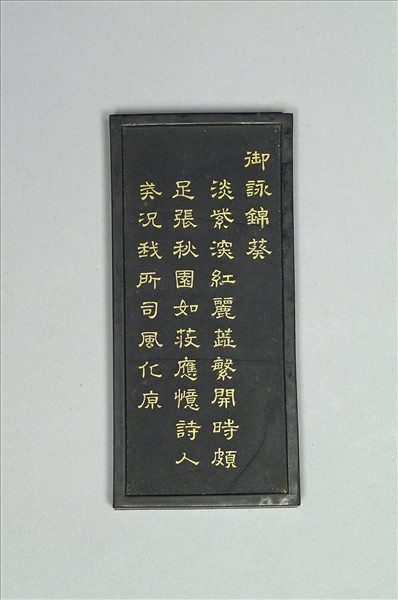 御詠錦葵
淡紫深紅麗蕋繁開時頗
足張秋園如荍應憶詩人
美況我所司風化原